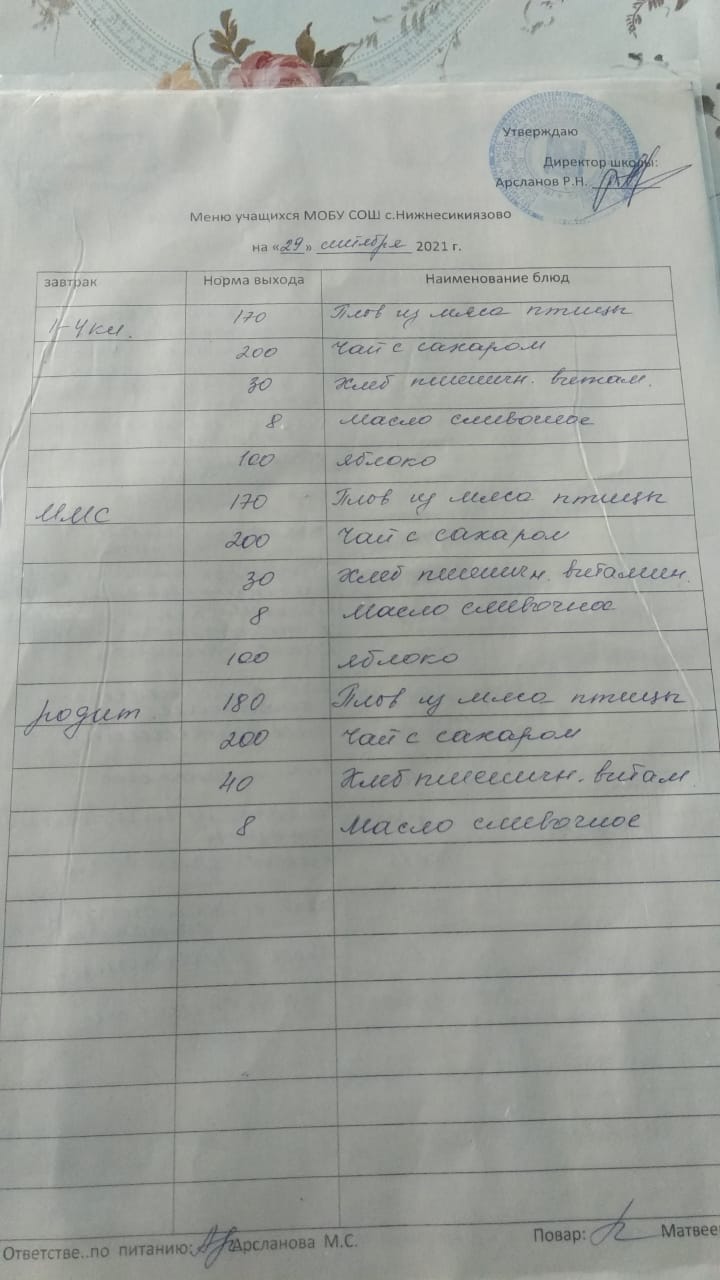 Утверждаю
Директор школы:
Арсланов Р.Н.
Меню учащихся МОБУ СОШ с.Нижнесикиязово
на «29» сентября 2021 г.
завтрак Норма выхода Наименование блюд
1-4 кл. 170 Плов из мяса птицы
200 Чай с сахаром
30 Хлеб пшеничн. витам.
8 Масло сливочное
100 яблоко
ММС 170 Плов из мяса птицы
200 Чай с сахаром
30 Хлеб пшеничн. витамин.
8 Масло сливочное
100 яблоко
родит 180 Плов из мяса птицы
200 Чай с сахаром
40 Хлеб пшеничн. витам.
8 Масло сливочное
Ответстве..по питанию: Арсланова М.С. Повар: Матвее